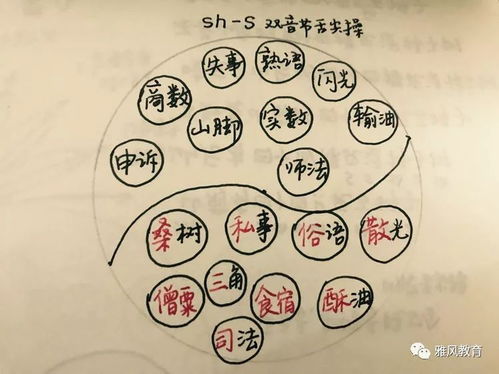 sh-S 双音节舌尖操
失事
熟语
闪光
商数
山脚
实数
输油
申诉
师法
桑树
私事
俗语
散光
僧粟
三角
食宿
酥油
司法
雅风教育